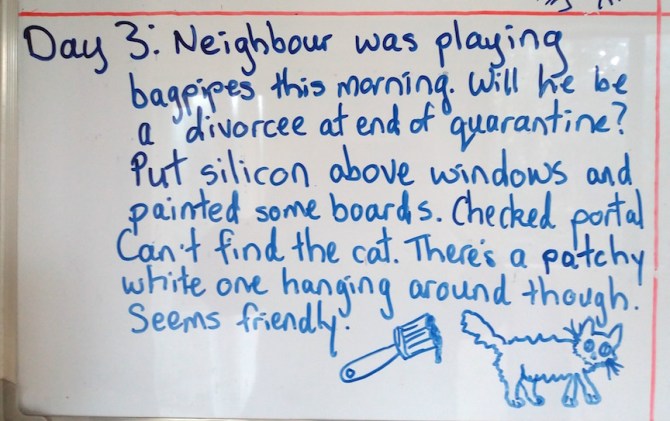 Day 3: Neighbour was playing
bagpipes this morning. Will he be
a divorcee at end of quarantine?
Put silicon above windows and
painted some boards. Checked portal
Can't find the cat. There's a patchy
white one hanging around though.
Seems friendly.